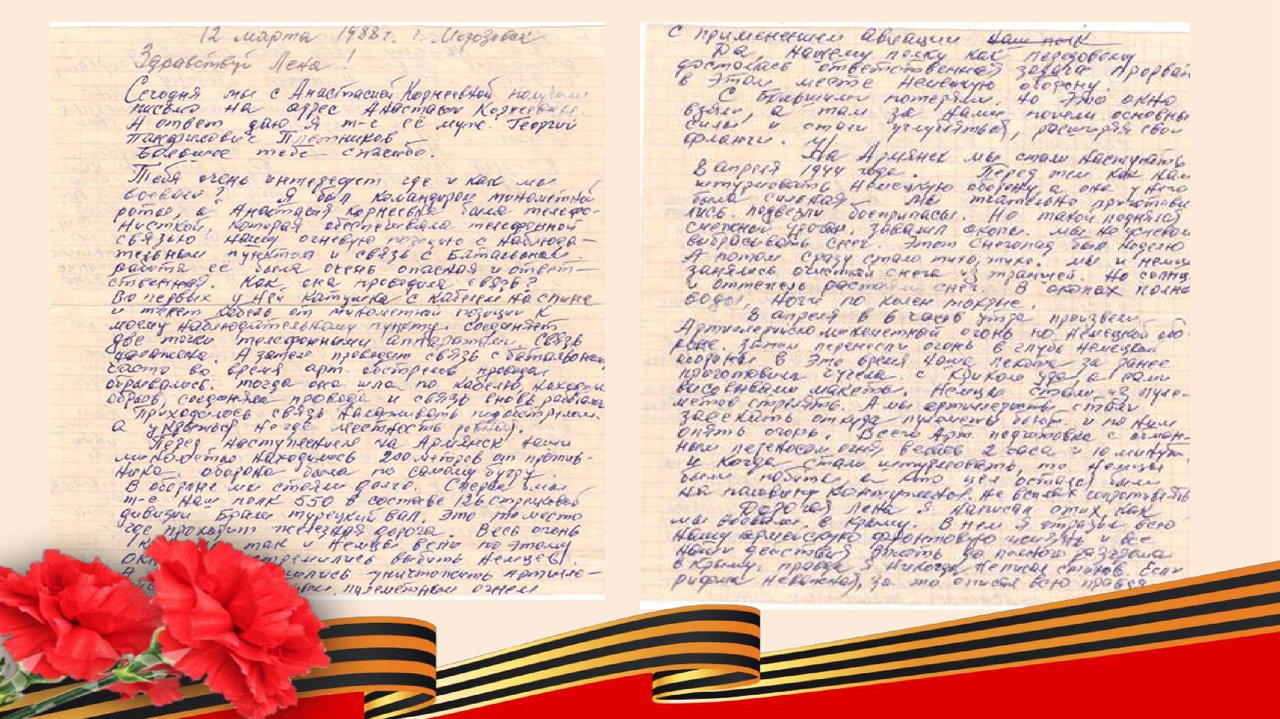 12 марта 1988 г. г. Морозовск
Здравствуй Лена!
Сегодня мы с Анастасией Корнеевной получили
письмо на адрес Анастасии Корнеевны.
А ответ даю я т-е её муж. Георгий
Панфилович Плетников
Большое тебе спасибо.
Тебя очень интересует где и как мы
воевали? Я был командиром миномётной
роты, а Анастасия Корнеевна была телефо-
нисткой, которая обеспечивала телефонной
связью нашу огневую позицию с наблюда-
тельным пунктом и связь с батальоном.
работа её была очень опасная и ответ-
ственная. Как она проводила связь?
Во первых у ней катушка с кабелем на спине
и тянет кабель от миномётной позиции к
моему наблюдательному пункту. соединяет
две точки телефонными аппаратами. Связь
А затем проводит связь с батальоном
часто во время арт обстрелов провода
обрывались. тогда она шла по кабелю, находила
обрыв, соединяла провода и связь вновь работала
Приходилось связь налаживать под обстрелом.
а укрыться негде местность ровная.
Перед наступлением на Армянск наши
миномёты находились 200 метров от против-
ника. оборона была по самому бугру.
В обороне мы стояли долго. Сперва мы
т-е наш полк 550 в составе 126 стрелковой
дивизии брали турецкий вал, это то место
где проходит железная дорога. Весь огонь
так и Немцы вели по этому
стремились выбить Немцев.
уничтожить артилле-
пулемётным огнем
с применением авиации наш полк
Да, нашему полку как передовому
досталась ответственная задача Прорвать
в этом месте Немецкую оборону.
С большими потерями. но это окно
взяли, а там за нами пошли основные
силы и стали углубляться, расширяя свои
фланги.
На Армянск мы стали наступать
8 апреля 1944 года. Перед тем как нам
штурмовать Немецкую оборону, а она у него
была сильная. Мы тщательно приготови
лись. подвезли боеприпасы. Но такой поднялся
снежный ураган, завалил окопы. мы не успевали
выбрасывать снег. Этот снегопад был неделю
А потом сразу стало тихо, тихо. мы и немцы
занялись очисткой снега из траншей. Но солнце
и оттепель растаяли снег. В окопах полно
воды, ноги по колен мокрые.
8 апреля в 6 часов утра произвели
Артиллерийско миномётный огонь по Немецкой обо-
роне. затем переносили огонь в глубь Немецкой
обороны в это время наша пехота за ранее
приготовила чучела с криком Ура, а сами
высовывали макеты. Немцы стали из пуле-
метов стрелять. А мы артиллеристы стали
засекать откуда пулемёты бьют. и по ним
опять огонь. Всего Арт подготовка с
ным переносом огня велась 2 часа и 10 минут.
и когда стали штурмовать, то Немцы
были побиты а кто цел остался были
на половину контужены. не всилах сопротивлять
Дорогая Лена я написал стих, как
мы воевали в Крыму. В нем я отразил всю
нашу армейскую фронтовую жизнь и все
наши действия вплоть до полного разгрома
в Крыму. правда я Никогда не писал стихов. Если
рифмы неважные, за то описал всю правду.